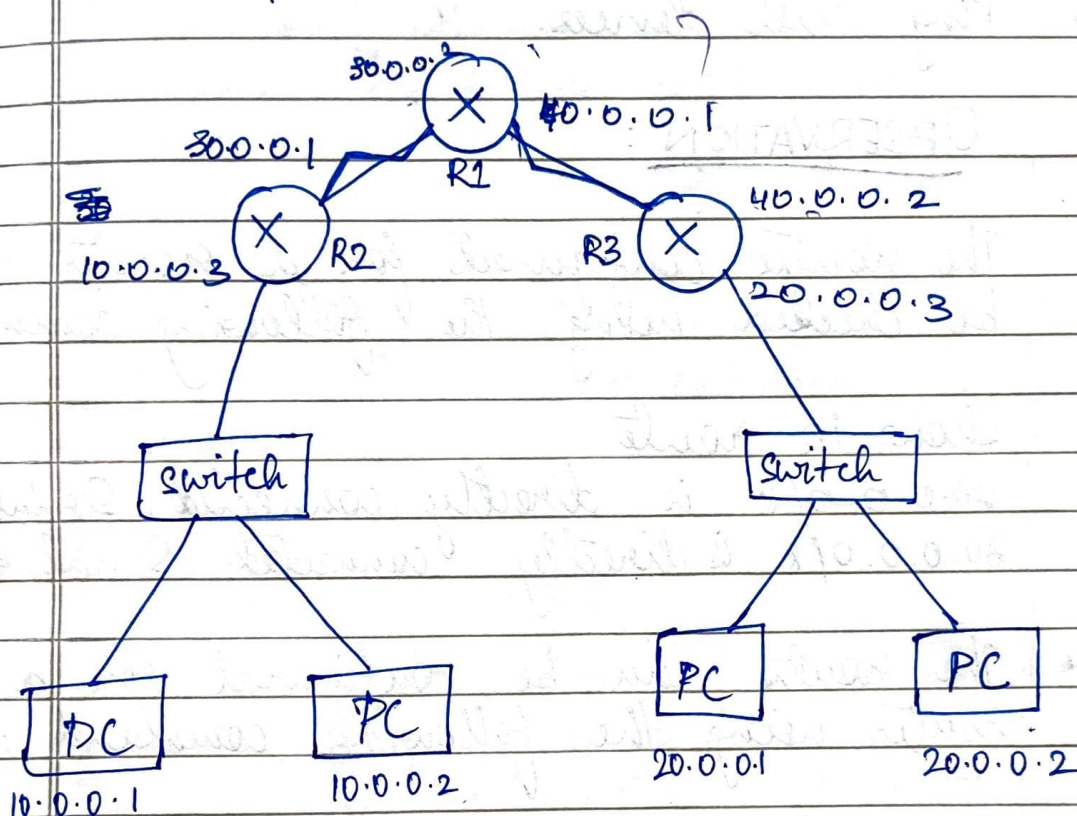 30.0.0.2
40.0.0.1
30.0.0.1
R1
40.0.0.2
R2
R3
10.0.0.3
20.0.0.3
switch
switch
PC
PC
PC
PC
20.0.0.1
20.0.0.2
10.0.0.1
10.0.0.2